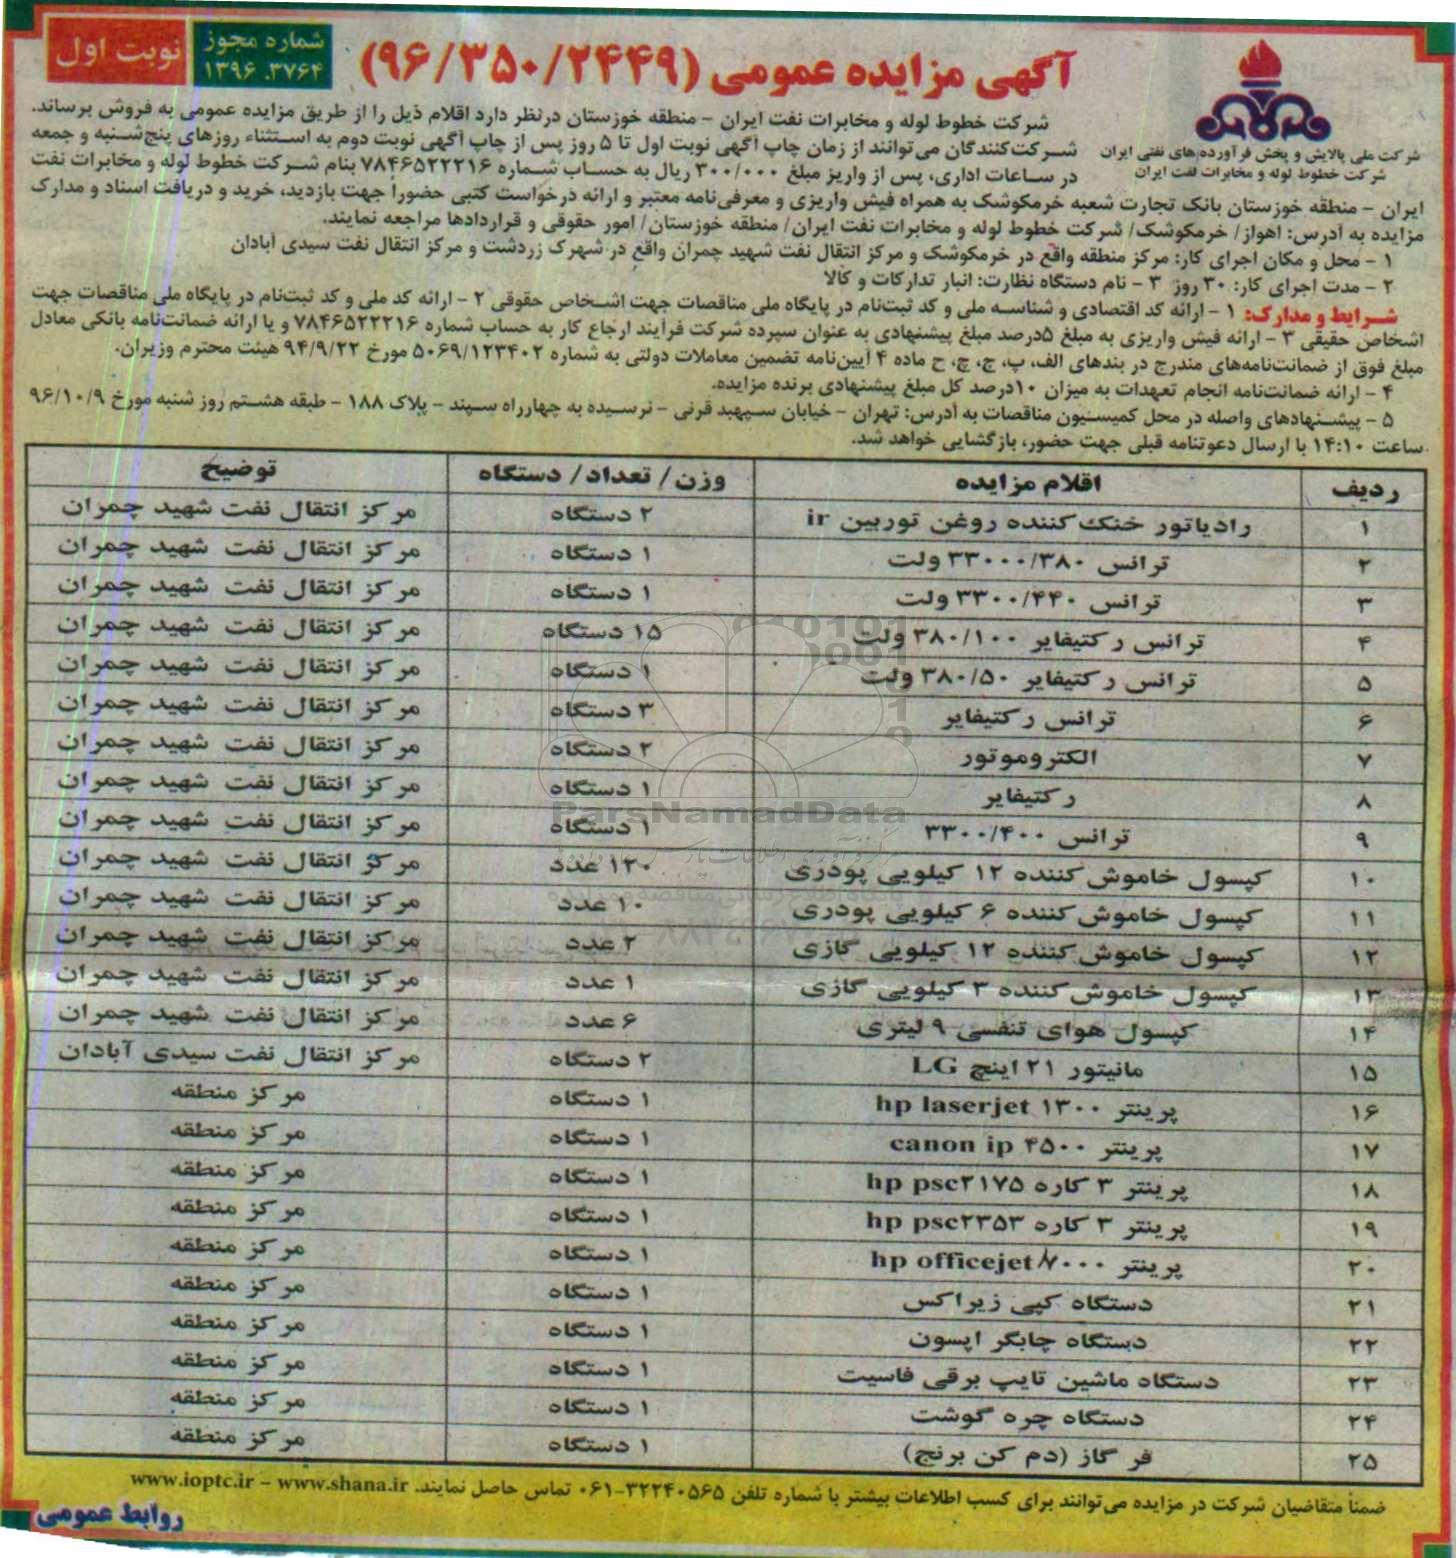 شماره مجوز
۱۳۹۶.۳۷۶۴
نوبت اول
آگهی مزایده عمومی (۹۶/۳۵۰/۲۴۴۹)
شرکت ملی پالایش و پخش فرآورده‌های نفتی ایران
شرکت خطوط لوله و مخابرات نفت ایران
شرکت خطوط لوله و مخابرات نفت ایران - منطقه خوزستان درنظر دارد اقلام ذیل را از طریق مزایده عمومی به فروش برساند.
شرکت‌کنندگان می‌توانند از زمان چاپ آگهی نوبت اول تا ۵ روز پس از چاپ آگهی نوبت دوم به استثناء روزهای پنج‌شنبه و جمعه
در ساعات اداری، پس از واریز مبلغ ۳۰۰/۰۰۰ ریال به حساب شماره ۷۸۴۶۵۲۲۲۱۶ بنام شرکت خطوط لوله و مخابرات نفت
ایران - منطقه خوزستان بانک تجارت شعبه خرمکوشک به همراه فیش واریزی و معرفی‌نامه معتبر و ارائه درخواست کتبی حضوراً جهت بازدید، خرید و دریافت اسناد و مدارک
مزایده به آدرس: اهواز/ خرمکوشک/ شرکت خطوط لوله و مخابرات نفت ایران/ منطقه خوزستان/ امور حقوقی و قراردادها مراجعه نمایند.
۱ - محل و مکان اجرای کار: مرکز منطقه واقع در خرمکوشک و مرکز انتقال نفت شهید چمران واقع در شهرک زردشت و مرکز انتقال نفت سیدی آبادان
۲ - مدت اجرای کار: ۳۰ روز ۳ - نام دستگاه نظارت: انبار تدارکات و کالا
شرایط و مدارک: ۱ - ارائه کد اقتصادی و شناسه ملی و کد ثبت‌نام در پایگاه ملی مناقصات جهت اشخاص حقوقی ۲ - ارائه کد ملی و کد ثبت‌نام در پایگاه ملی مناقصات جهت
اشخاص حقیقی ۳ - ارائه فیش واریزی به مبلغ ۵درصد مبلغ پیشنهادی به عنوان سپرده شرکت فرآیند ارجاع کار به حساب شماره ۷۸۴۶۵۲۲۲۱۶ و یا ارائه ضمانت‌نامه بانکی معادل
مبلغ فوق از ضمانت‌نامه‌های مندرج در بندهای الف، پ، ج، چ، ح ماده ۴ آیین‌نامه تضمین معاملات دولتی به شماره ۵۰۶۹/۱۲۳۴۰۲ مورخ ۹۴/۹/۲۲ هیئت محترم وزیران.
۴ - ارائه ضمانت‌نامه انجام تعهدات به میزان ۱۰درصد کل مبلغ پیشنهادی برنده مزایده.
۵ - پیشنهادهای واصله در محل کمیسیون مناقصات به آدرس: تهران - خیابان سپهبد قرنی - نرسیده به چهارراه سپند - پلاک ۱۸۸ - طبقه هشتم روز شنبه مورخ ۹۶/۱۰/۹
ساعت ۱۴:۱۰ با ارسال دعوتنامه قبلی جهت حضور، بازگشایی خواهد شد.
ردیف اقلام مزایده وزن/ تعداد/ دستگاه توضیح
۱ رادیاتور خنک‌کننده روغن توربین ir ۲ دستگاه مرکز انتقال نفت شهید چمران
۲ ترانس ۳۳۰۰۰/۳۸۰ ولت ۱ دستگاه مرکز انتقال نفت شهید چمران
۳ ترانس ۳۳۰۰/۴۴۰ ولت ۱ دستگاه مرکز انتقال نفت شهید چمران
۴ ترانس رکتیفایر ۳۸۰/۱۰۰ ولت ۱۵ دستگاه مرکز انتقال نفت شهید چمران
۵ ترانس رکتیفایر ۳۸۰/۵۰ ولت ۱ دستگاه مرکز انتقال نفت شهید چمران
۶ ترانس رکتیفایر ۳ دستگاه مرکز انتقال نفت شهید چمران
۷ الکتروموتور ۲ دستگاه مرکز انتقال نفت شهید چمران
۸ رکتیفایر ۱ دستگاه مرکز انتقال نفت شهید چمران
۹ ترانس ۳۳۰۰/۴۰۰ ۱ دستگاه مرکز انتقال نفت شهید چمران
۱۰ کپسول خاموش‌کننده ۱۲ کیلویی پودری ۱۲۰ عدد مرکز انتقال نفت شهید چمران
۱۱ کپسول خاموش‌کننده ۶ کیلویی پودری ۱۰ عدد مرکز انتقال نفت شهید چمران
۱۲ کپسول خاموش‌کننده ۱۲ کیلویی گازی ۲ عدد مرکز انتقال نفت شهید چمران
۱۳ کپسول خاموش‌کننده ۳ کیلویی گازی ۱ عدد مرکز انتقال نفت شهید چمران
۱۴ کپسول هوای تنفسی ۹ لیتری ۶ عدد مرکز انتقال نفت شهید چمران
۱۵ مانیتور ۲۱ اینچ LG ۲ دستگاه مرکز انتقال نفت سیدی آبادان
۱۶ پرینتر hp laserjet ۱۳۰۰ ۱ دستگاه مرکز منطقه
۱۷ پرینتر canon ip ۴۵۰۰ ۱ دستگاه مرکز منطقه
۱۸ پرینتر ۳ کاره hp psc۲۱۷۵ ۱ دستگاه مرکز منطقه
۱۹ پرینتر ۳ کاره hp psc۲۳۵۳ ۱ دستگاه مرکز منطقه
۲۰ پرینتر hp officejet ۷۰۰۰ ۱ دستگاه مرکز منطقه
۲۱ دستگاه کپی زیراکس ۱ دستگاه مرکز منطقه
۲۲ دستگاه چاپگر اپسون ۱ دستگاه مرکز منطقه
۲۳ دستگاه ماشین تایپ برقی فاسیت ۱ دستگاه مرکز منطقه
۲۴ دستگاه چره گوشت ۱ دستگاه مرکز منطقه
۲۵ فر گاز (دم کن برنج) ۱ دستگاه مرکز منطقه
ParsNamadData
ضمناً متقاضیان شرکت در مزایده می‌توانند برای کسب اطلاعات بیشتر با شماره تلفن ۳۲۲۴۰۵۶۵-۰۶۱ تماس حاصل نمایند. www.ioptc.ir - www.shana.ir
روابط عمومی